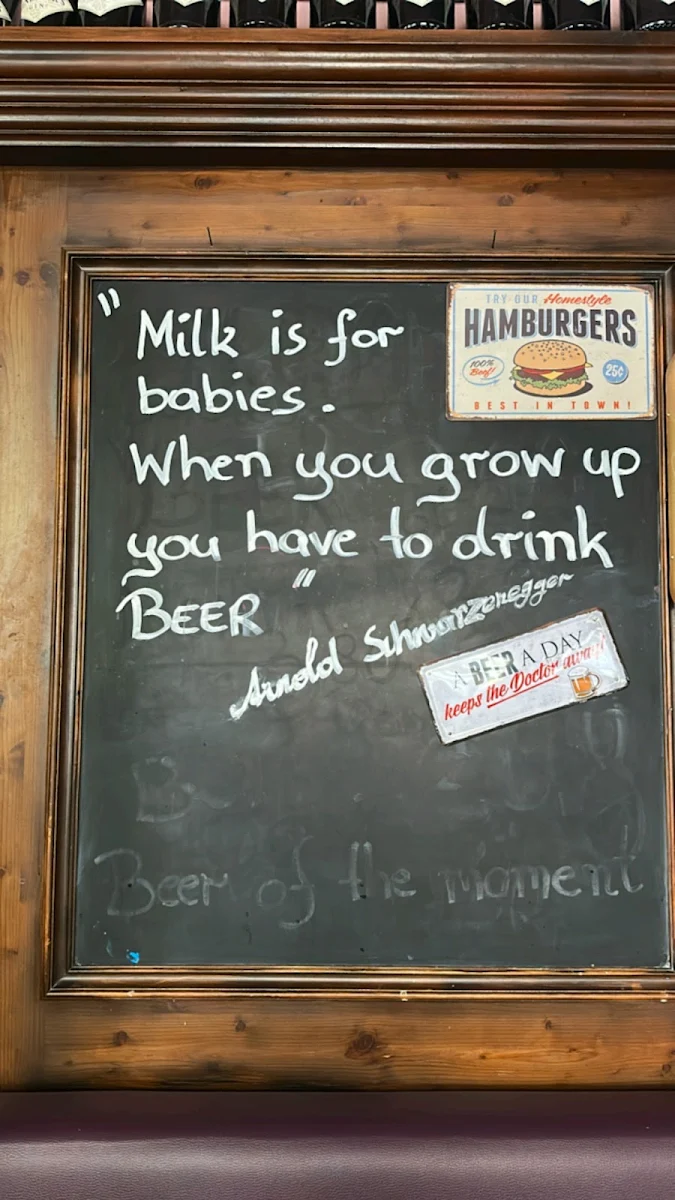 " Milk is for
babies.
When you grow up
you have to drink
BEER "
Arnold Schwarzenegger
TRY OUR Homestyle
HAMBURGERS
100%
Beef!
25¢
BEST IN TOWN!
A BEER A DAY
keeps the Doctor away!
Beer of the moment